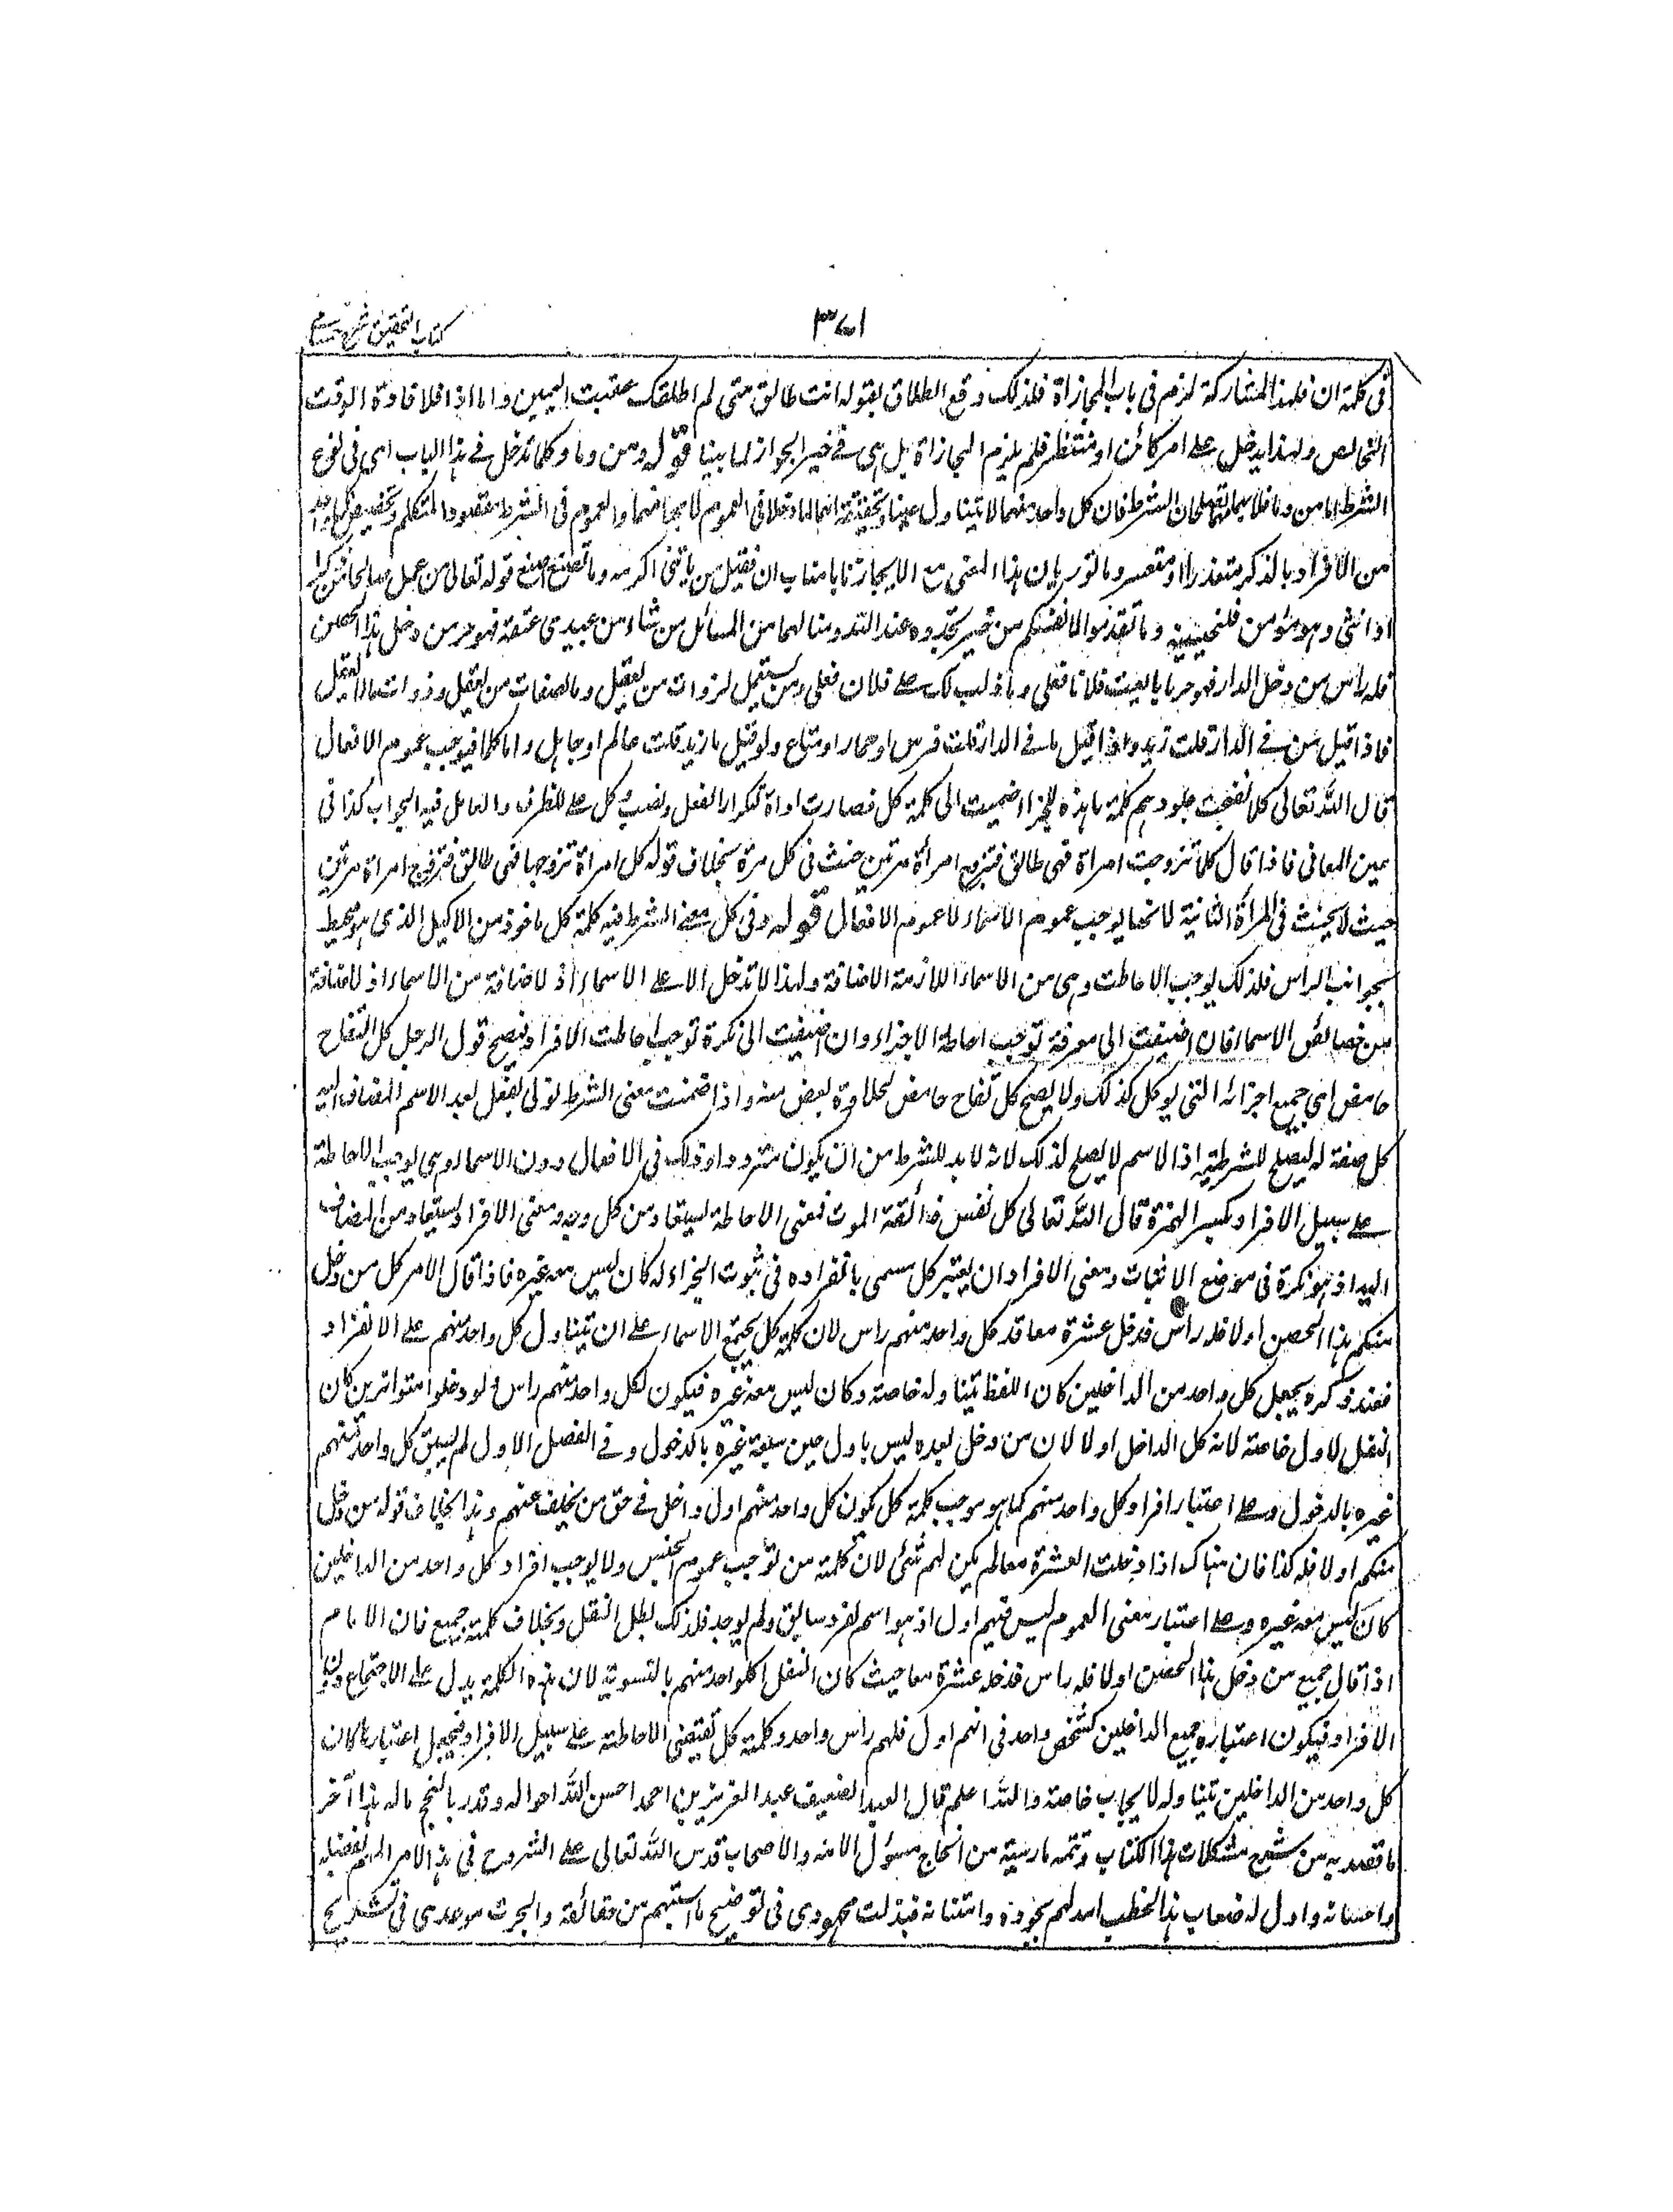 كتاب التحقيق شرح حسامي
٣٧١
فى كلمة ان فلهذا المشاركة لزم فى باب المجازاة فلذلك وقع الطلاق بقوله انت طالق متى لم اطلقك عقيب اليمين واما اذا فلافادة الوقت
الخالص ولهذا يدخل على امر كائن او منتظر فلم يلزم المجازاة بل هى فى حيز الجواز لما بينا قوله ومن وما وكلما تدخل فى هذا الباب اى فى نوع
الشرط اما من وما فلابهامهما تصلحان للشرط فان كل واحد منهما لا تتناول عينا والعموم فى الشرط مقصود المتكلم وتخصيص كل واحد
من الافراد بالذكر متعذر او متعسر هذا المعنى مع الايجاز نابا مناب ان فقيل من ياتنى اكرمه وما تصنع اصنع قوله تعالى من عمل صالحا من ذكر
او انثى وهو مؤمن فلنحيينه وما تقدموا لانفسكم من خير تجدوه عند الله ومثالهما من المسائل من شاء من عبيدى عتقه فهو حر من دخل هذا الحصن
فله راس من دخل الدار فهو حر ما بايعت فلانا فعلى وما ذاب لك على فلان فعلى ومن يستعمل لذوات من يعقل وما لصفات من يعقل وذوات ما لا يعقل
فاذا قيل من فى الدار قلت زيد واذا قيل ما فى الدار قلت فرس او حمار او متاع ولو قيل ما زيد قلت عالم او جاهل واما كلما فيوجب عموم الافعال
قال الله تعالى كلما نضجت جلودهم كلمة ما هذه للجزاء ضميت الى كلمة كل فصارت اداة لتكرار الفعل ونصب كل على الظرف والعامل فيه الجواب كذا فى
عين المعانى فاذا قال كلما تزوجت امراة فهى طالق فتزوج امرأة مرتين حنث فى كل مرة بخلاف قوله كل امراة تزوجها فهى طالق فتزوج امراة مرتين
حيث لا يحنث فى المرأة الثانية لانها يوجب عموم الاسماء لا عموم الافعال قوله وفى كل معنى الشرط فيه كلمة كل ماخوذ من الاكليل الذى هو محيط
بجوانب الراس فلذلك يوجب الاحاطة وهى من الاسماء اللازمة الاضافة ولهذا لا تدخل الا على الاسماء اذ الاضافة من الاسماء اذ الاضافة
من خصائص الاسماء فان اضيفت الى معرفة توجب احاطة الاجزاء وان اضيفت الى نكرة توجب احاطة الافراد فيصح قول الرجل كل التفاح
حامض اى جميع اجزائه التى يوكل كذلك ولا يصح كل تفاح حامض لحلاوة بعض منه واذا ضمنت معنى الشرط تولى بفعل بعد الاسم المضاف اليه
كل صفة له ليصلح للشرطية اذ الاسم لا يصلح لذلك لانه لا بد للشرط من ان يكون مترددا وذلك فى الافعال دون الاسماء وهى يوجب الاحاطة
على سبيل الافراد بكسر الهمزة قال الله تعالى كل نفس ذائقة الموت فمعنى الاحاطة يستفاد من كل وجه ومعنى الافراد يستفاد من المضاف
اليه اذ هو نكرة فى موضع الاثبات ومعنى الافراد ان يعتبر كل مسمى بانفراده فى ثبوت الجزاء له كان ليس معه غيره فاذا قال الامر كل من دخل
منكم هذا الحصن اولا فله راس فدخل عشرة معا فلكل واحد منهم راس لان كلمة كل يجمع الاسماء على ان تتناول كل واحد منهم على الانفراد
فعند ذكره يجعل كل واحد من الداخلين كان اللفظ تناوله خاصة وكان ليس معه غيره فيكون لكل واحد منهم راس ولو دخلوا متواترين كان
النفل للاول خاصة لانه كل الداخل اولا لان من دخل بعده ليس باول حين سبقه غيره بالدخول وفى الفصل الاول لم يسبق كل واحد منهم
غيره بالدخول وعلى اعتبار افراد كل واحد منهم كما هو موجب كلمة كل يكون كل واحد منهم اول داخل فى حق من يخلف عنهم وهذا بخلاف قوله من دخل
منكم اولا فله كذا فان هناك اذا دخلت العشرة معا لم يكن لهم شئ لان كلمة من توجب عموم الجنس ولا يوجب افراد كل واحد من الداخلين
كان ليس معه غيره وعلى اعتبار معنى العموم ليس فيهم اول اذ هو اسم لفرد سابق ولم يوجد فلذلك بطل النفل وبخلاف كلمة جميع فان الامام
اذا قال جميع من دخل هذا الحصن اولا فله راس فدخله عشرة معا حيث كان النفل لكل واحد منهم بالتسوية لان هذه الكلمة يدل على الاجتماع دون
الافراد فيكون اعتباره جميع الداخلين كشخص واحد فى انهم اول فلهم راس واحد وكلمة كل تقتضى الاحاطة على سبيل الافراد فيجعل اعتبارها كان
كل واحد من الداخلين تناوله الايجاب خاصة والله اعلم قال العبد الضعيف عبد العزيز بن احمد احسن الله احواله وقدر بالنجح ماله هذا آخر
ما قصد به من شرح مشكلات هذا الكتاب وتتمه ما رمته من انجاح مسؤل الائمة والاصحاب قدس الله تعالى على الشروع فى هذا الامر المهم بفضله
واحسانه واول له صعاب هذا الخطب المدلهم بجوده وامتنانه فبذلت مجهودى فى توضيح ما استبهم من حقائقه وانجزت موعدى فى تشريح